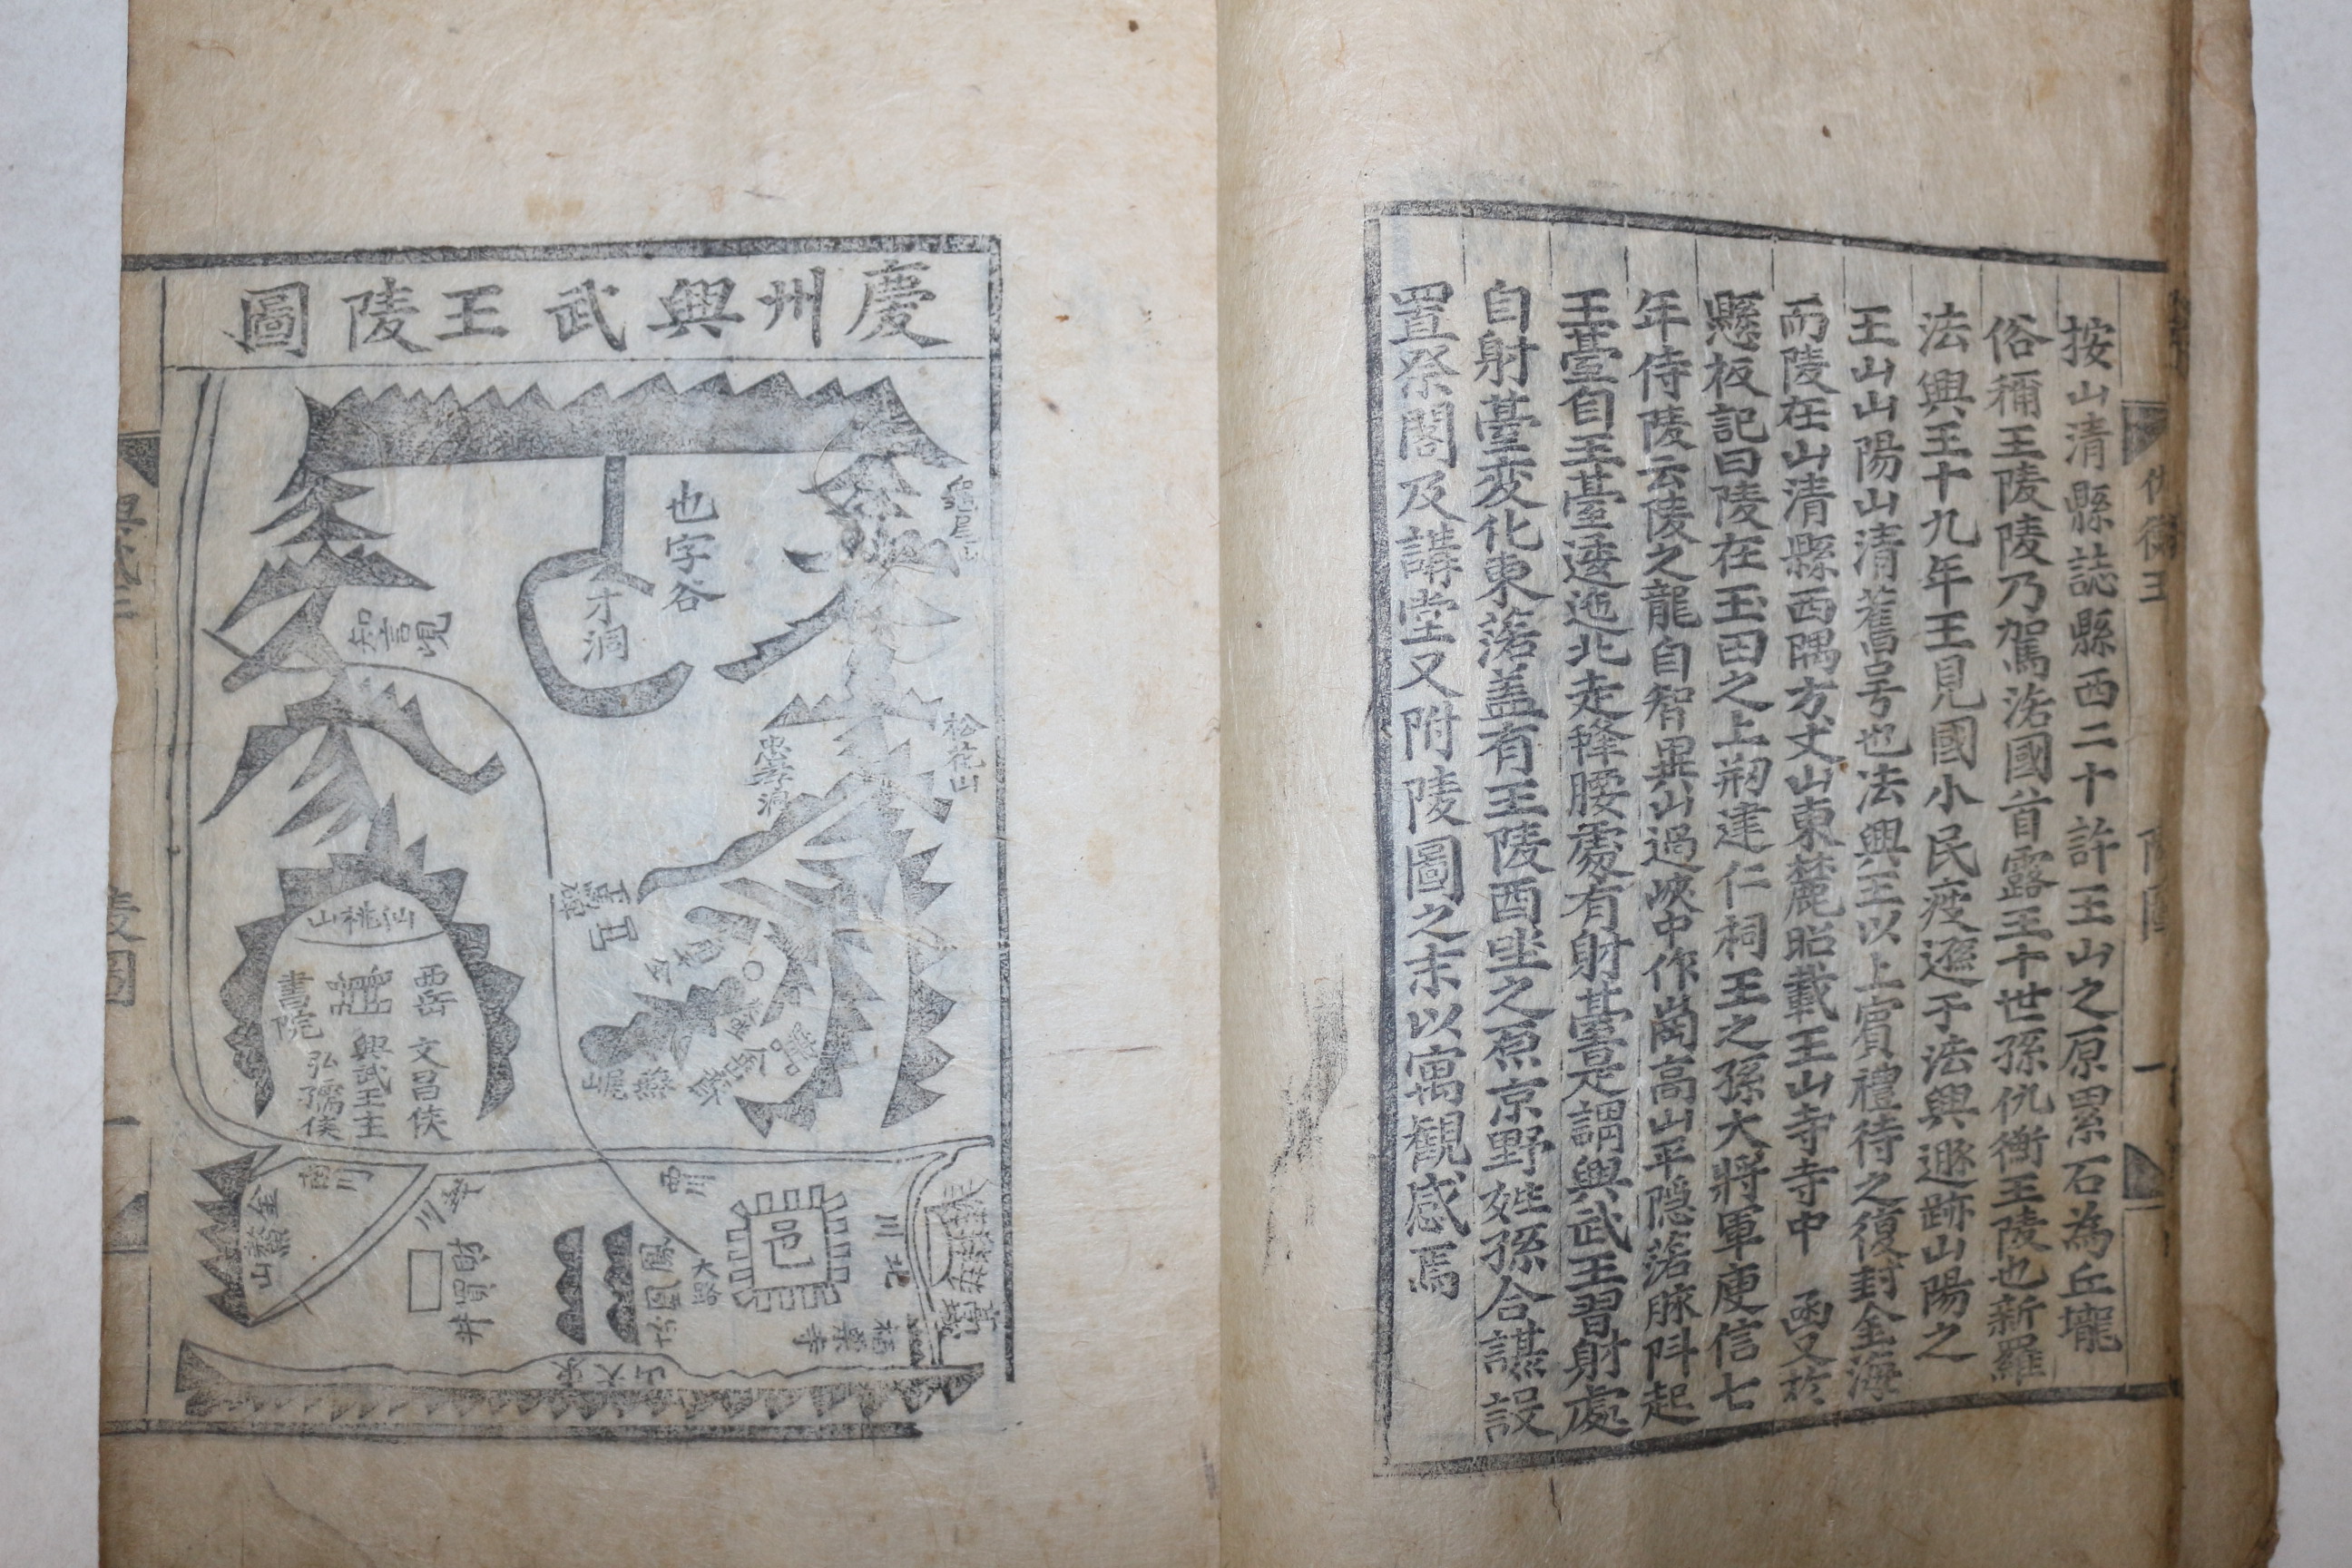 按山清縣誌縣西二十許王山之原累石為丘壠
俗稱王陵陵乃駕洛國首露王十世孫仇衡王陵也新羅
法興王十九年王見國小民疲遜于法興遯跡山陽之
王山山陽山清舊号也法興王以上賓禮待之復封金海
而陵在山清縣西隅方丈山東麓昭載王山寺寺中 函又於
懸板記曰陵在王田之上刱建仁祠王之孫大將軍庾信七
年侍陵云陵之龍自智異山過峽中作崗高山平隠落脉斗起
王臺自王臺逶迤北走降腰處有射臺是謂興武王習射處
自射臺変化東落盖有王陵酉坐之原京野姓孫合謀設
置祭閣及講堂又附陵圖之末以寓観感焉
仇衡王
慶州興武王陵圖
龜尾山
也字谷
才洞
知言峴
松花山
忠孝洞
仙桃山
西岳
書院
文昌侯
興武王主
弘孺侯
燕
崛
西川
金鰲山
財買井
鳳凰台
大路
邑
北川